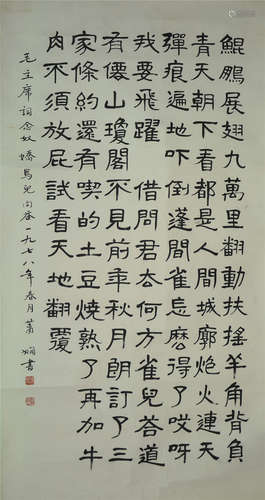 鯤鵬展翅九萬里翻動扶搖羊角背負
青天朝下看都是人間城廓炮火連天
彈痕遍地吓倒蓬間雀怎麽得了哎呀
我要飛躍 借問君去何方雀兒答道
有僊山瓊閣不見前年秋月朗訂了三
家條約還有喫的土豆燒熟了再加牛
肉不須放屁試看天地翻覆
毛主席詞念奴嬌鳥兒問答一九七八年春月蕭嫻書